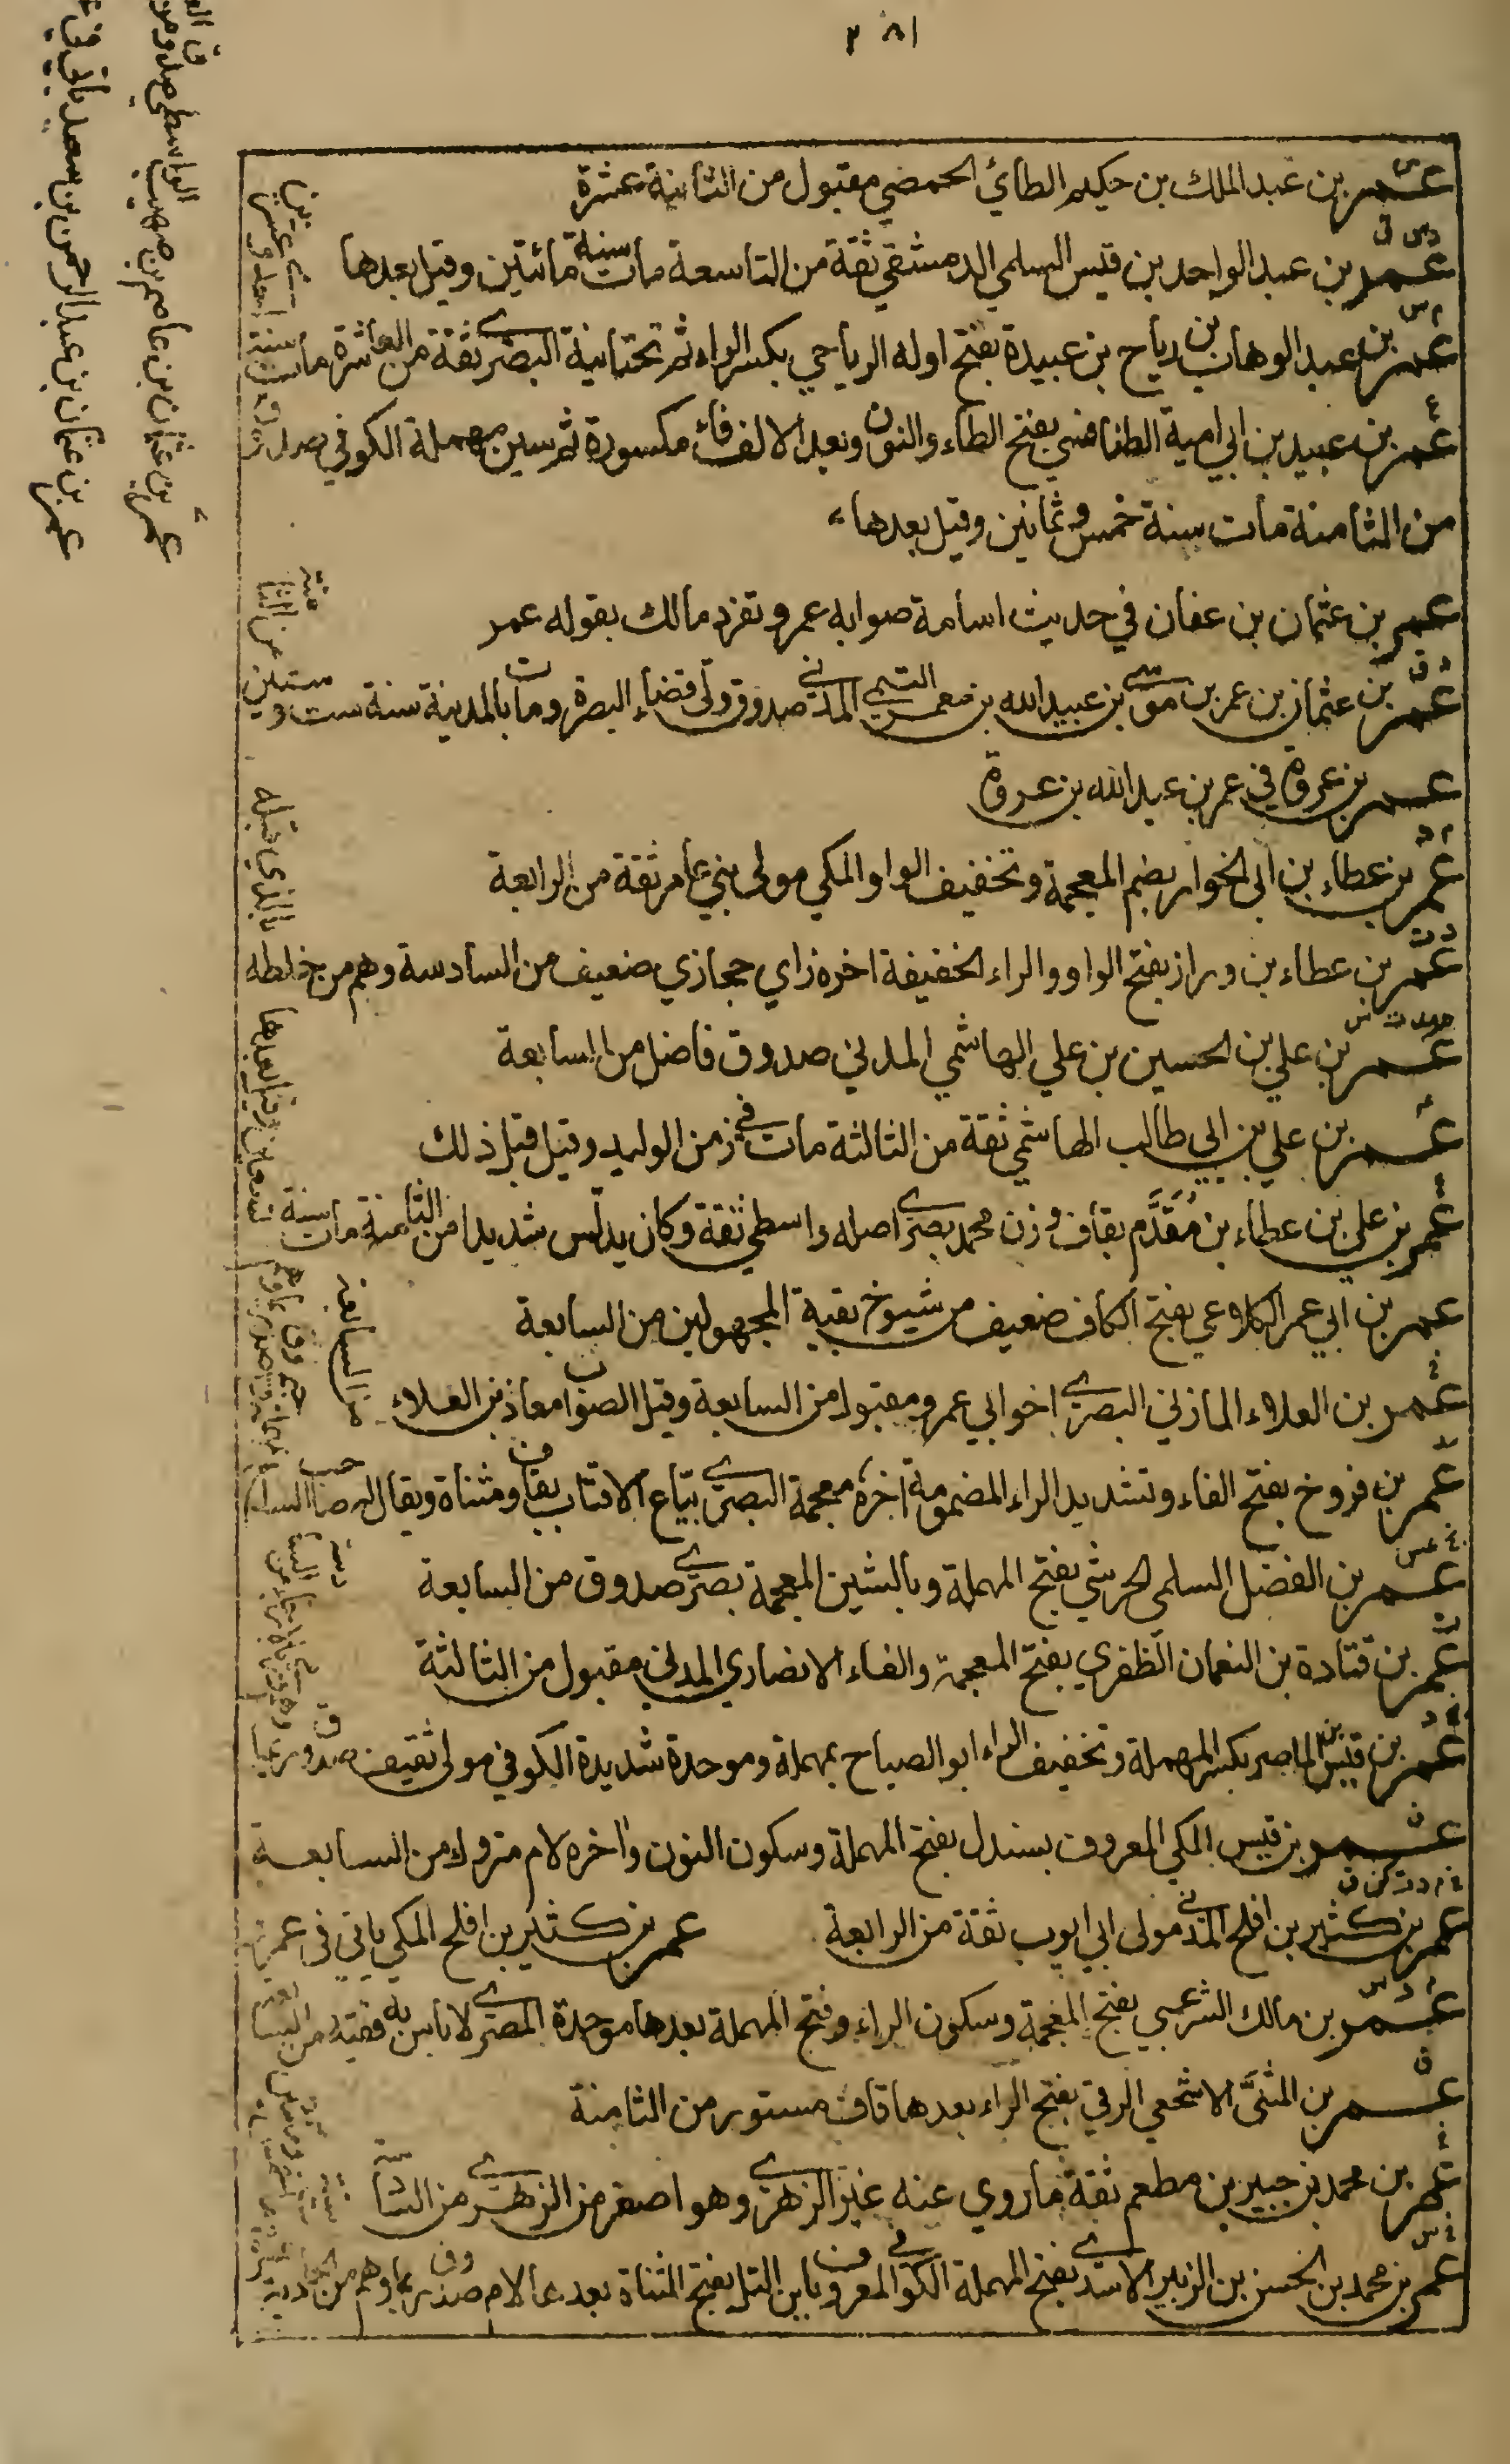 ٢٨١
عمر بن عبد الملك بن حكيم الطائي الحمصي مقبول من الثانية عشرة
د س ق
عمر بن عبد الواحد بن قيس السلمي الدمشقي ثقة من التاسعة مات سنة مائتين وقيل بعدها
م س
عمر بن عبد الوهاب بن رياح بن عبيدة بفتح اوله الرياحي بكسر الراء ثم تحتانية البصري ثقة من العاشرة مات سنة احدى وعشرين
ع
عمر بن عبيد بن ابي امية الطنافسي بفتح الطاء والنون وبعد الالف فاء مكسورة ثم سين مهملة الكوفي صدوق
من الثامنة مات سنة خمس وثمانين وقيل بعدها
عمر بن عثمان بن عفان في حديث اسامة صوابه عمرو تفرد مالك بقوله عمر
د ق
عمر بن عثمان بن عمر بن موسى بن عبيد الله بن معمر التيمي المدني صدوق ولي قضاء البصرة ومات بالمدينة سنة ست وستين
عمر بن عروة في عمر بن عبد الله بن عروة
م د
عمر بن عطاء بن ابي الخوار بضم المعجمة وتخفيف الواو المكي مولى بني عامر ثقة من الرابعة
د ق
عمر بن عطاء بن وراز بفتح الواو والراء الخفيفة اخره زاي حجازي ضعيف من السادسة وهم من خلطه بالذي قبله
عمر بن علي بن الحسين بن علي الهاشمي المدني صدوق فاضل من السابعة
عمر بن علي بن ابي طالب الهاشمي ثقة من الثالثة مات في زمن الوليد وقيل قبل ذلك
ع
عمر بن علي بن عطاء بن مُقَدَّم بقاف وزن محمد بصري اصله واسطي ثقة وكان يدلس شديدا من الثامنة مات سنة تسعين وقيل بعدها
عمر بن ابي عمر الكلاعي بفتح الكاف ضعيف من شيوخ بقية المجهولين من السابعة
عمر بن العلاء المازني البصري اخو ابي عمرو مقبول من السابعة وقيل الصواب معاذ بن العلاء
عمر بن فروخ بفتح الفاء وتشديد الراء المضمومة اخره معجمة البصري بياع الاقتاب بقاف ومثناة ويقال له صاحب
عمر بن الفضل السلمي الحرشي بفتح المهملة وبالشين المعجمة بصري صدوق من السابعة
عمر بن قتادة بن النعمان الظفري بفتح المعجمة والفاء الانصاري المدني مقبول من الثالثة
عمر بن قيس الماصر بكسر المهملة وتخفيف الراء ابو الصباح بمهملة وموحدة شديدة الكوفي مولى ثقيف صدوق
ق
عمر بن قيس المكي المعروف بسندل بفتح المهملة وسكون النون واخره لام متروك من السابعة
عمر بن كثير بن افلح المدني مولى ابي ايوب ثقة من الرابعة عمر بن كثير بن افلح المكي ياتي في عمرو
عمر بن مالك الشرعبي بفتح المعجمة وسكون الراء وفتح المهملة بعدها موحدة المصري لا باس به فقيه من السابعة
ق
عمر بن المثنى الاشجعي الرقي بفتح الراء بعدها قاف مستور من الثامنة
عمر بن محمد بن جبير بن مطعم ثقة ما روى عنه غير الزهري وهو اصغر من الزهري من السادسة
خ س
عمر بن محمد بن الحسن بن الزبير الاسدي بفتح المهملة الكوفي المعروف بابن التل بفتح المثناة بعدها لام صدوق ربما وهم من الحادية
عمر بن عثمان بن عاصم بن صهيب الواسطي صدوق من
عمر بن عثمان بن عبد الرحمن بن سعيد ياتي في